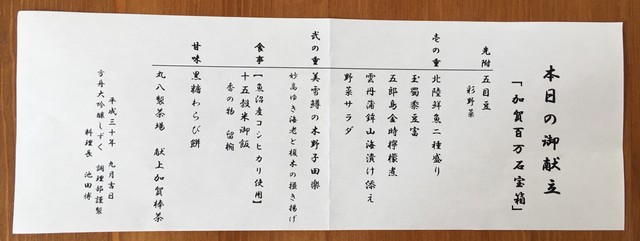 本日の御献立
「加賀百万石宝箱」
先附
五目豆
彩野菜
壱の重
北陸鮮魚二種盛り
玉蜀黍豆富
五郎島金時檸檬煮
雲丹蒲鉾山海漬け添え
野菜サラダ
弐の重
美雪鱒の木野子田楽
妙高ゆき海老と榎木の掻き揚げ
食事
【魚沼産コシヒカリ使用】
十五穀米御飯
香の物 留椀
甘味
黒糖わらび餅
丸八製茶場 献上加賀棒茶
平成三十年 九月吉日
方舟大吟醸しずく 調理部謹製
料理長 池田博